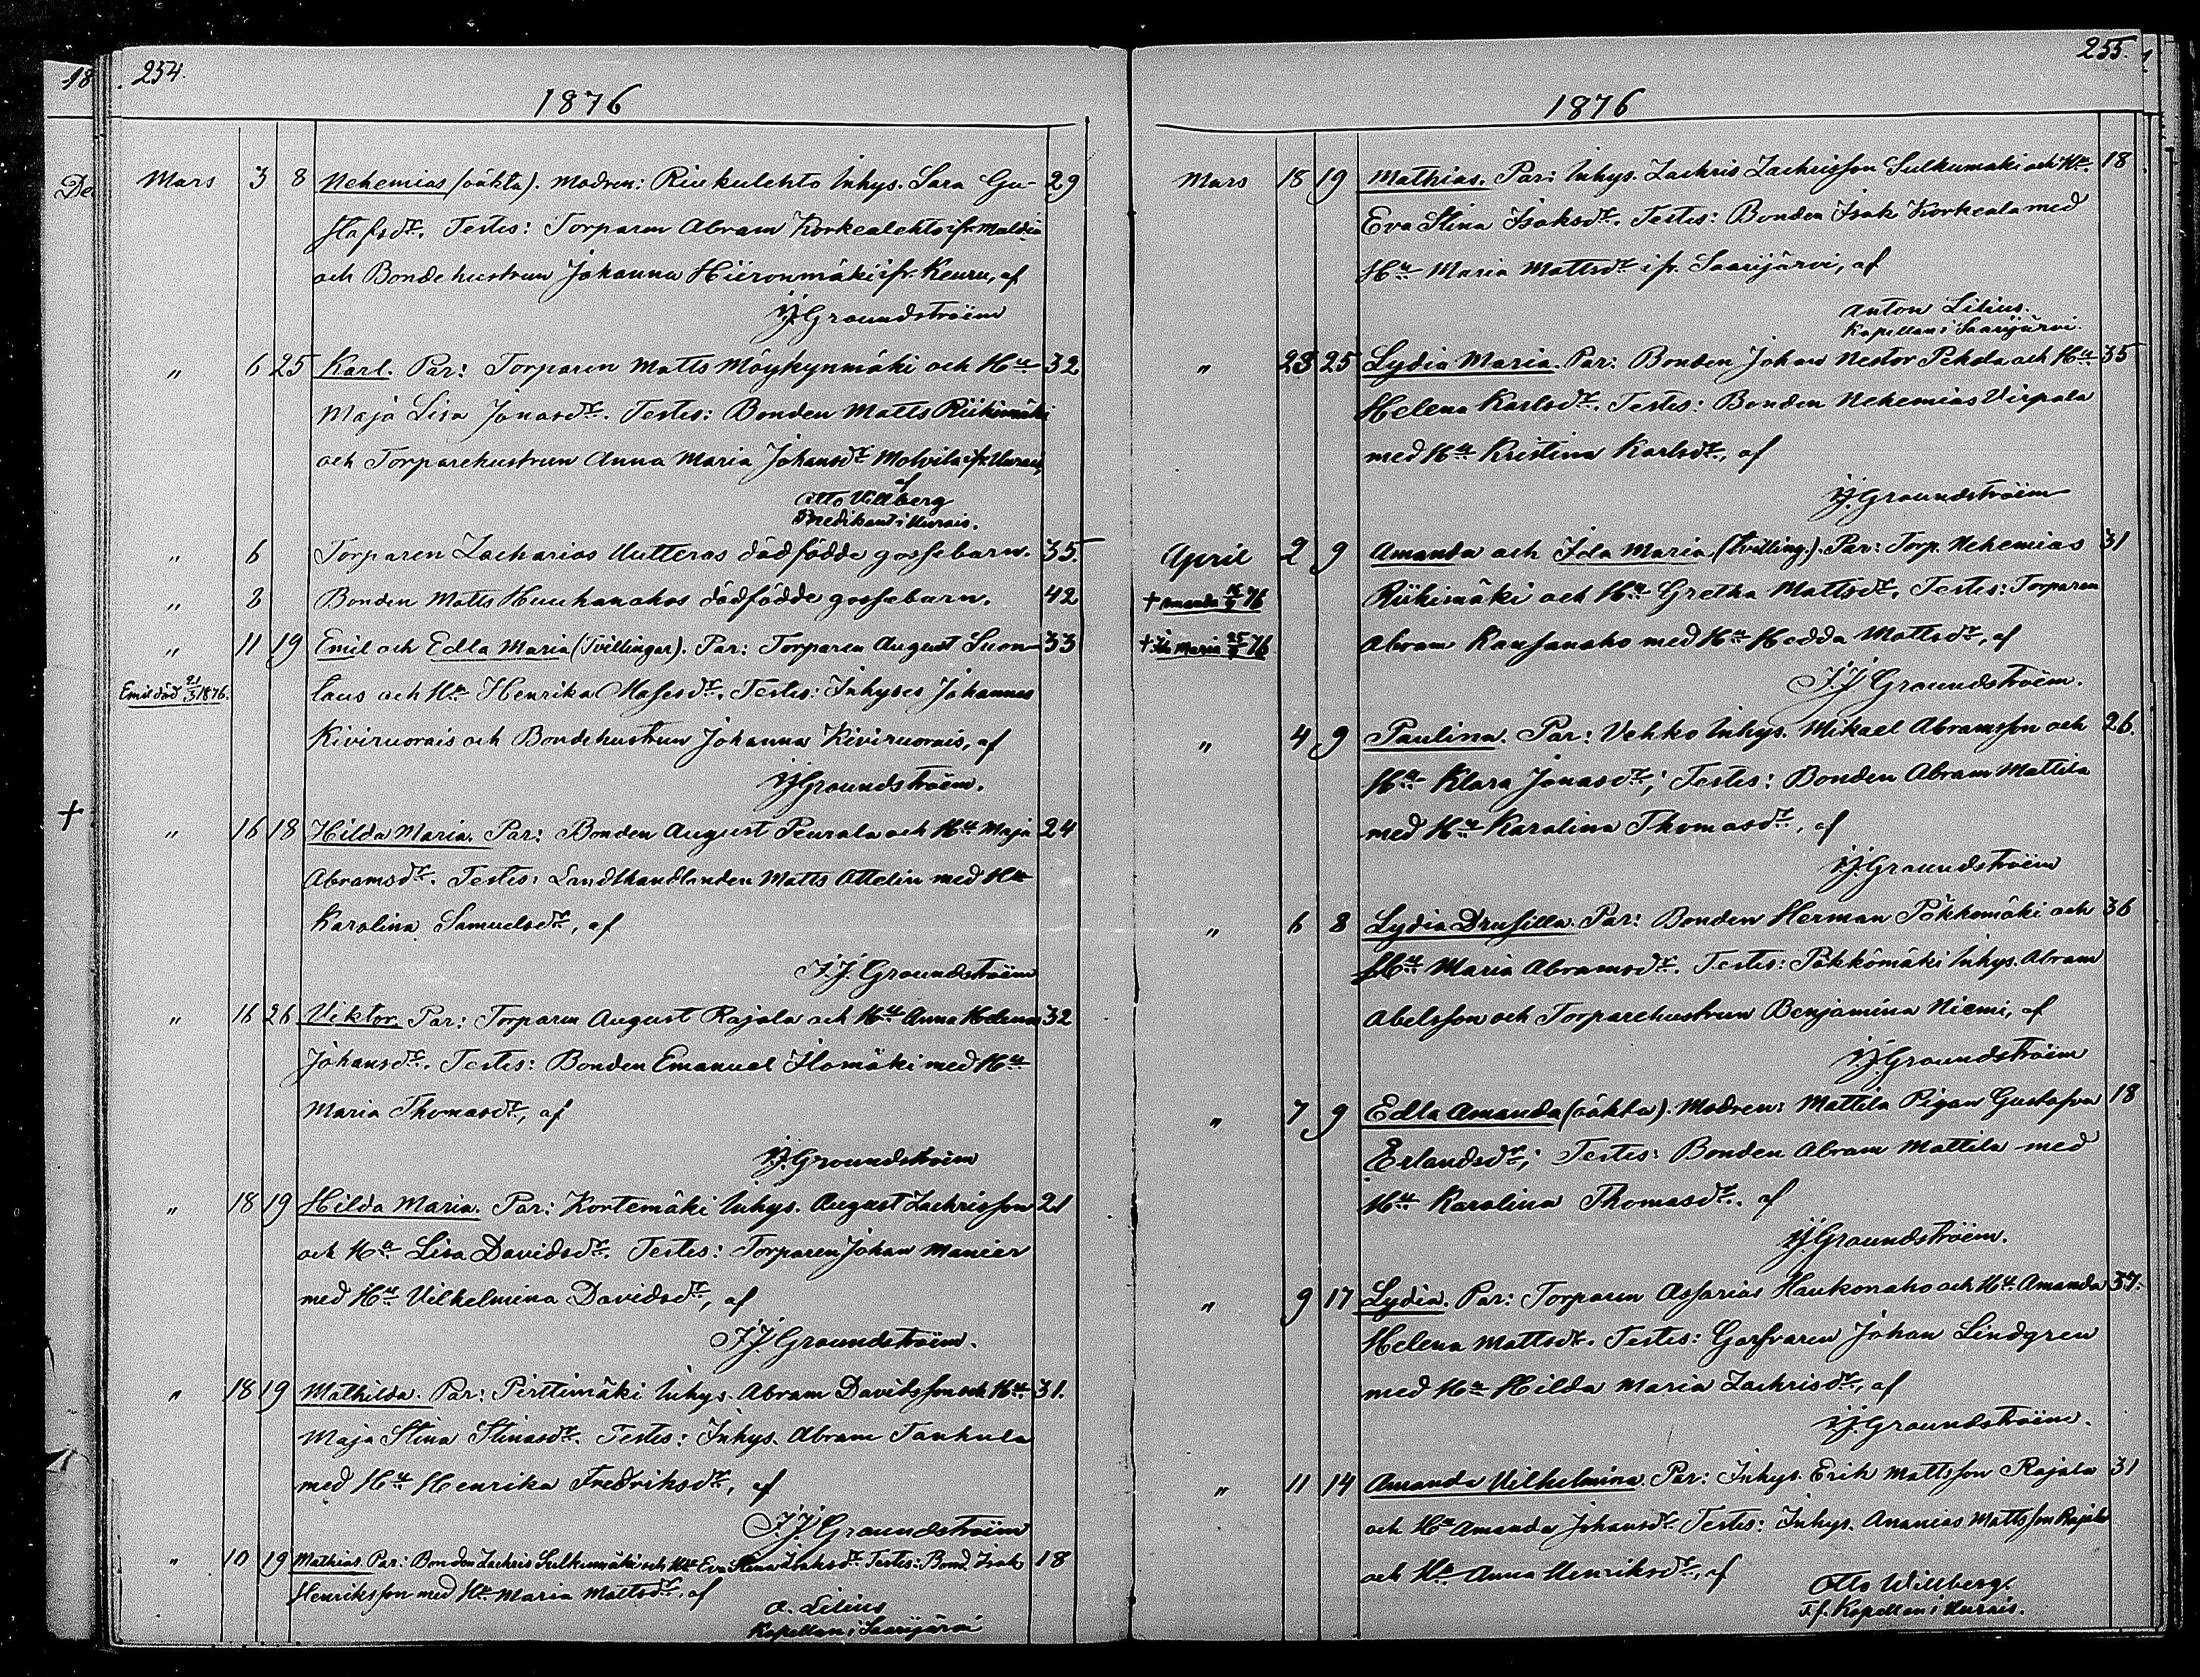 18
254.
1876
De
Mars 3 8 Nehemias (oäkta). Modren: Riukulehto Inhys. Sara Gu- 29
stafsdr. Testes: Torparen Abram Korkealehto ifr. Multia
och Bondehustrun Johanna Hieronmäki ifr. Keuru, af
J.J. Graundstroëm
" 6 25 Karl. Par: Torparen Matts Möykynmäki och Hu 32
Maja Lisa Jonasdr. Testes: Bonden Matts Riihimäki
och Torparehustrun Anna Maria Johansdr ifr. Uurais,
af
Otto Villberg
Predikant i Uurais.
" 6 Torparen Zacharias Uutteras dödfödde gossebarn. 35.
" 8 Bonden Matts Huuhanahos dödfödde gossebarn. 42
" 11 19 Emil och Edla Maria (Tvillingar). Par: Torparen August Suon- 33
Emil död 21/3 1876. laus och Hu Henrika Mosesdr. Testes: Inhyses Johannes
Kiviruorais och Bondehustrun Johanna Kiviruorais, af
J.J. Graundstroëm.
+
" 16 18 Hilda Maria. Par: Bonden August Peurala och Hu Maja 24
Abramsdr. Testes: Landthandlanden Matts Attelin med Hu
Karolina Samuelsdr, af
J.J. Graundstroëm
" 16 26 Viktor. Par: Torparen August Rajala och Hu Anna Helena 32
Johansdr. Testes: Bonden Emanuel Ilomäki med Hu
Maria Thomasdr, af
J.J. Graundstroëm
" 18 19 Hilda Maria. Par: Kortemäki Inhys. August Zachrisson 21
och Hu Lisa Davidsdr. Testes: Torparen Johan Manier
med Hu Vilhelmina Davidsdr, af
J.J. Graundstroëm.
" 18 19 Mathilda. Par: Pirttimäki Inhys. Abram Davidsson och Hu 31.
Maja Stina Stinasdr. Testes: Inhys. Abram Tauhula
med Hu Henrika Fredriksdr, af
J.J. Graundstroëm
" 10 19 Mathias. Par: Bonden Zachris Sulkumäki och Hu Eva Stina Isaksdr. Testes: Bond. Isak 18
Henriksson med Hu Maria Mattsdr, af
A. Lilius
Kapellan i Saarijärvi
255.
1876
Mars 18 19 Mathias. Par: Inhys. Zachris Zachrisson Sulkumäki och Hu 18
Eva Stina Isaksdr. Testes: Bonden Isak Korkeala med
Hu Maria Mattsdr ifr. Saarijärvi, af
Anton Lilius.
Kapellan i Saarijärvi.
" 23 25 Lydia Maria. Par: Bonden Johan Nestor Pekola och Hu 35
Helena Karlsdr. Testes: Bonden Nehemias Virpala
med Hu Kristina Karlsdr, af
J.J. Graundstroëm
April 2 9 Amanda och Ida Maria (Tvilling.). Par: Torp. Nehemias 31
+ Amanda 76 Riihimäki och Hu Gretha Mattsdr. Testes: Torparen
+ Ida Maria 76 Abram Kansanaho med Hu Hedda Mattsdr, af
J.J. Graundstroëm.
" 4 9 Paulina. Par: Vehko Inhys. Mikael Abramsson och 26.
Hu Klara Jonasdr; Testes: Bonden Abram Mattila
med Hu Karolina Thomasdr, af
J.J. Graundstroëm
" 6 8 Lydia Drusilla. Par: Bonden Herman Pökkömäki och 36
Hu Maria Abramsdr. Testes: Pökkömäki Inhys. Abram
Abelsson och Torparehustrun Benjamina Niemi, af
J.J. Graundstroëm
" 7 9 Edla Amanda (oäkta). Modren: Mattila Pigan Gustafva 18
Erlandsdr; Testes: Bonden Abram Mattila med
Hu Karolina Thomasdr. af
J.J. Graundstroëm.
" 9 17 Lydia. Par: Torparen Assarias Haukonaho och Hu Amanda 37.
Helena Mattsdr. Testes: Garfvaren Johan Lindgren
med Hu Hilda Maria Zachrisdr, af
J.J. Graundstroëm.
" 11 14 Amanda Vilhelmina. Par: Inhys. Erik Mattsson Rajala 31
och Hu Amanda Johansdr. Testes: Inhys. Ananias Mattsson Rajala
och Hu Anna Henriksdr, af
Otto Willberg.
T.f. Kapellan i Uurais.